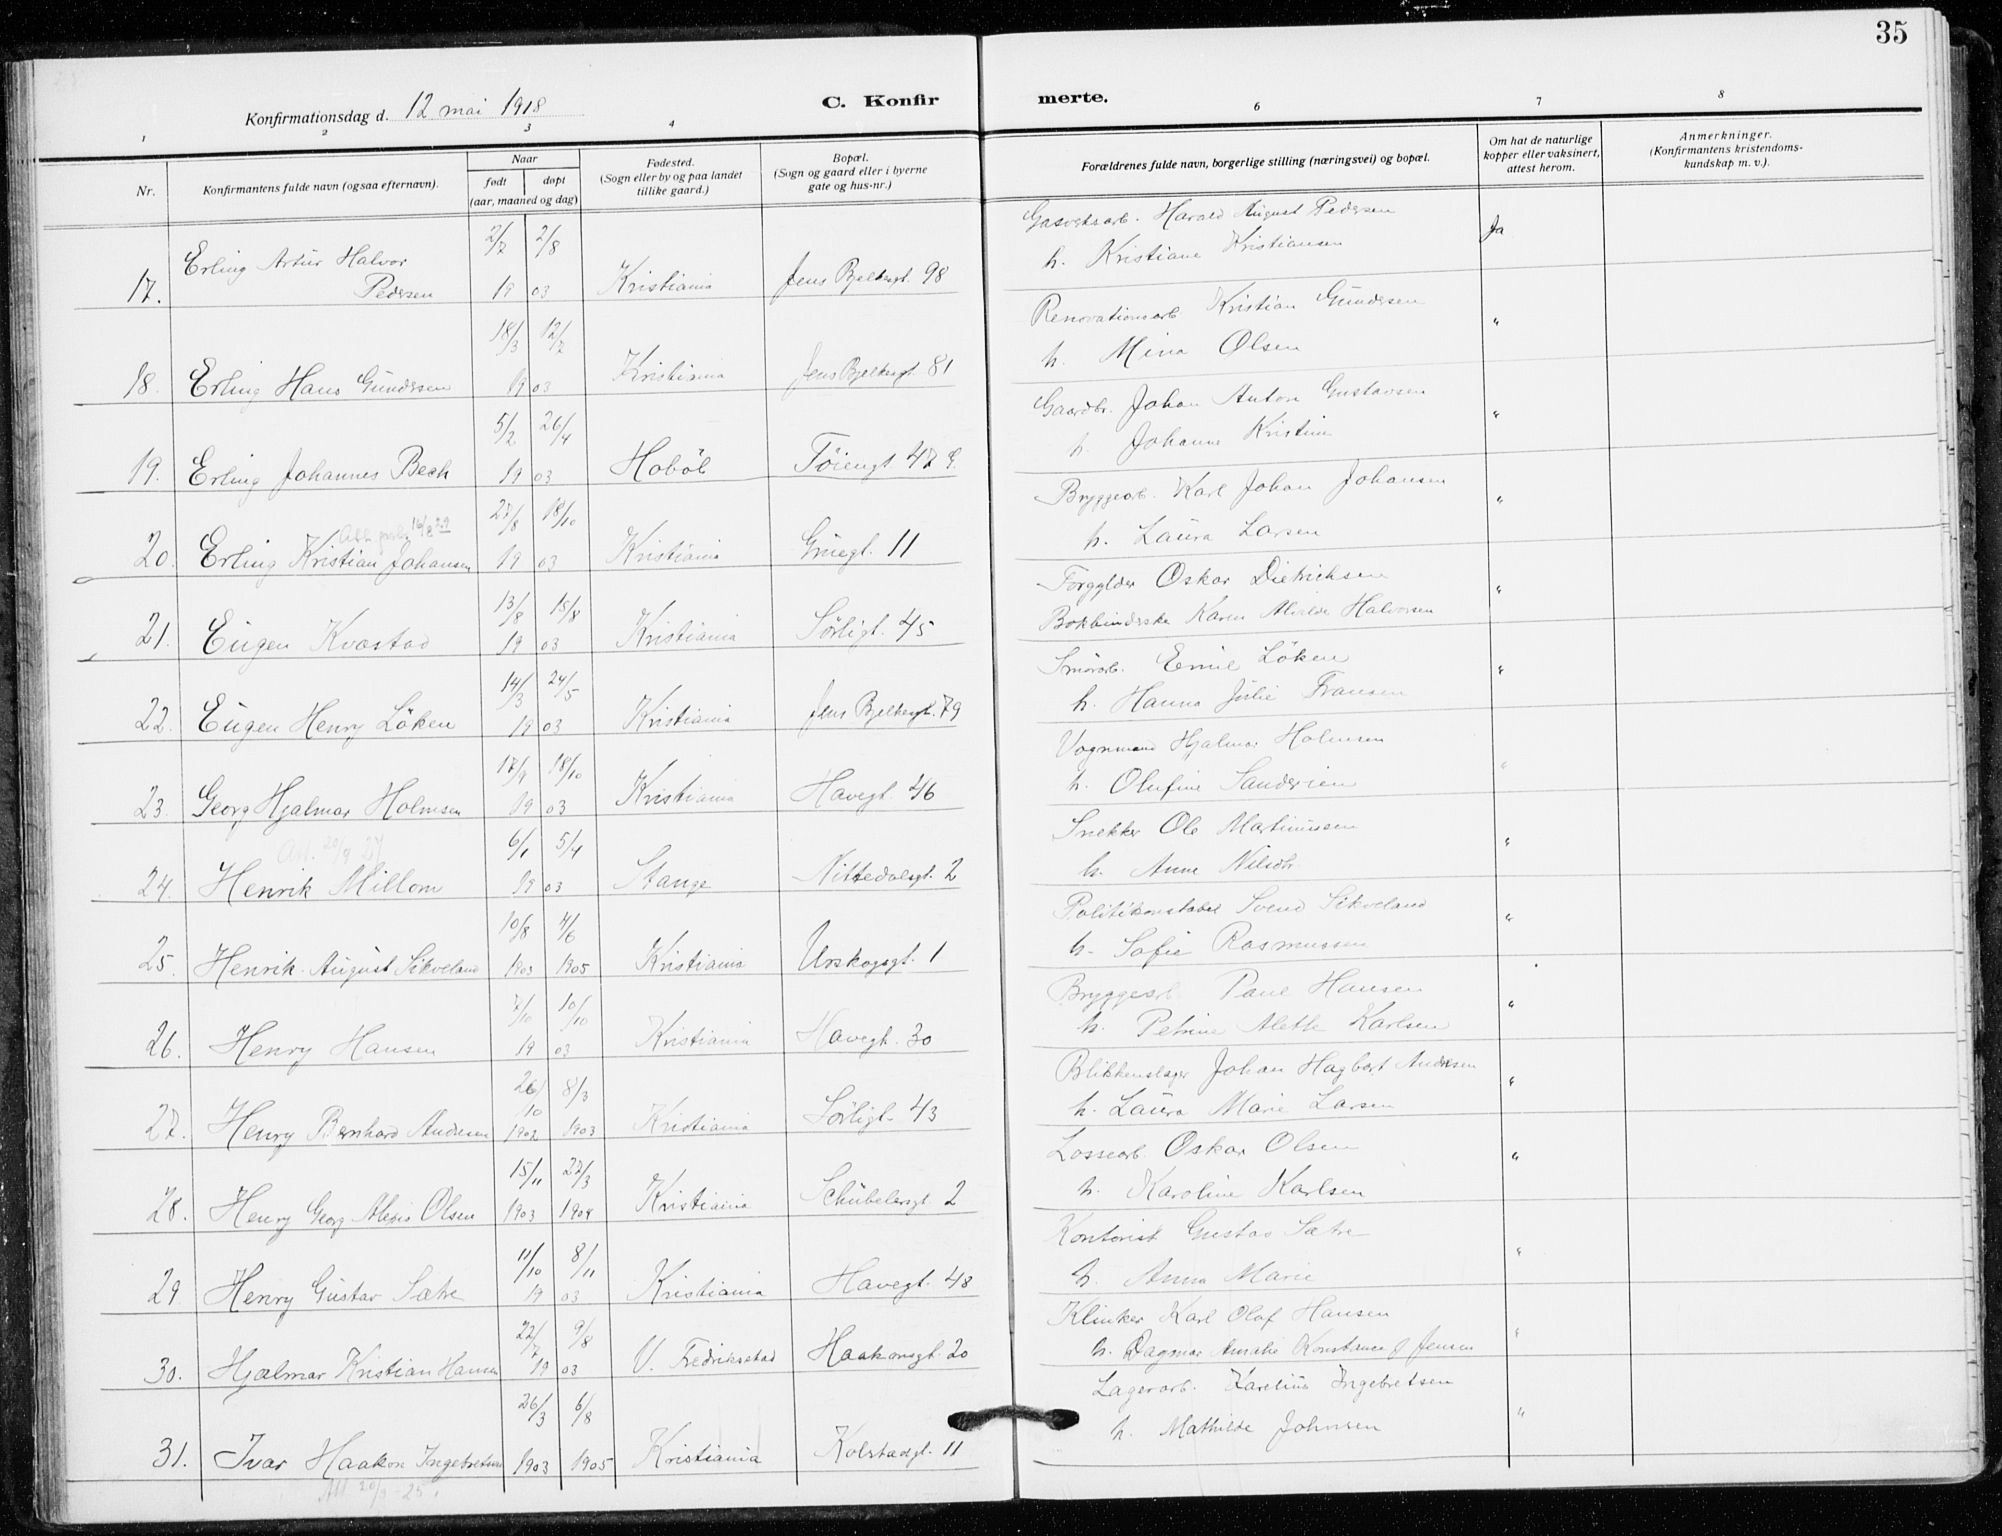 35
Konfirmationsdag d. 12 mai 1918
C. Konfirmerte.
1 2 3 4 6 7 8
Nr.
Konfirmantens fulde navn (ogsaa efternavn).
Naar
født døpt
(aar, maaned og dag)
Fødested.
(Sogn eller by og paa landet
tillike gaard.)
Bopæl.
(Sogn og gaard eller i byerne
gate og hus-nr.)
Forældrenes fulde navn, borgerlige stilling (næringsvei) og bopæl.
Om hat de naturlige
kopper eller vaksinert,
attest herom.
Anmerkninger.
(Konfirmantens kristendoms-
kundskap m. v.).
17. Erling Artur Halvor
Pedersen 2/7 2/8 19 03 Kristiania Jens Bjelkesgt. 98
Gasverksarb. Harald August Pedersen Ja
h. Kristiane Kristiansen
18. Erling Hans Gundersen 18/3 12/7 19 03 Kristiania Jens Bjelkesgt. 81
Renovationsarb. Kristian Gundersen "
h. Mina Olsen
19. Erling Johannes Bech 5/2 26/4 19 03 Hobøl Tøiengt. 47
Gaardbr. Johan Anton Gustavsen "
h. Johanne Kristine
20. Erling Kristian Johansen 27/8 18/10 19 03 Kristiania Gruegt. 11
16/8 29
Bryggearb. Karl Johan Johansen "
h. Laura Larsen
21. Eugen Kvæstad 13/8 15/8 19 03 Kristiania Sørligt. 45
Forgylder Oskar Dietrichsen "
Bokbinderske Karen Alvilde Halvorsen
22. Eugen Henry Løken 14/3 24/5 19 03 Kristiania Jens Bjelkesgt. 79
Smørarb. Emil Løken "
h. Hanna Julie Fransen
23. Georg Hjalmar Holmsen 17/9 18/10 19 03 Kristiania Havegt. 46
Vognmand Hjalmar Holmsen "
h. Olufine Sandersen
Att. 20/9 27
24. Henrik Millom 6/1 5/4 19 03 Stange Nittedalsgt. 2
Snekker Ole Martinussen "
h. Anne Nilsdtr.
25. Henrik August Sikveland 10/8 4/6 1903 1905 Kristiania Urskogsgt. 1
Politikonstabel Svend Sikveland "
h. Sofie Rasmussen
26. Henry Hansen 7/10 10/10 19 03 Kristiania Havegt. 30
Bryggearb. Paul Hansen "
h. Petrine Alette Karlsen
27. Henry Bernhard Andersen 26/10 8/3 1902 1903 Kristiania Sørligt. 43
Blikkenslager Johan Hagbart Andersen "
h. Laura Marie Larsen
28. Henry Georg Alexis Olsen 15/11 27/3 1903 1904 Kristiania Schübelersgt. 2
Lossearb. Oskar Olsen "
h. Karoline Karlsen
29 Henry Gustav Sætre 11/10 8/11 19 03 Kristiania Havegt. 48
Kontorist Gustav Sætre "
h. Anna Marie
30. Hjalmar Kristian Hansen 22/7 9/8 19 03 V. Fredrikstad Haakonsgt. 20
Klinker Karl Olaf Hansen "
h. Dagmar Amalie Konstance f. Jensen
31. Ivar Haakon Ingebretsen 26/3 6/8 1903 1905 Kristiania Kolstadgt. 11
Lagerarb. Karelius Ingebretsen "
h. Mathilde Johnsen
Att 20/3-25.